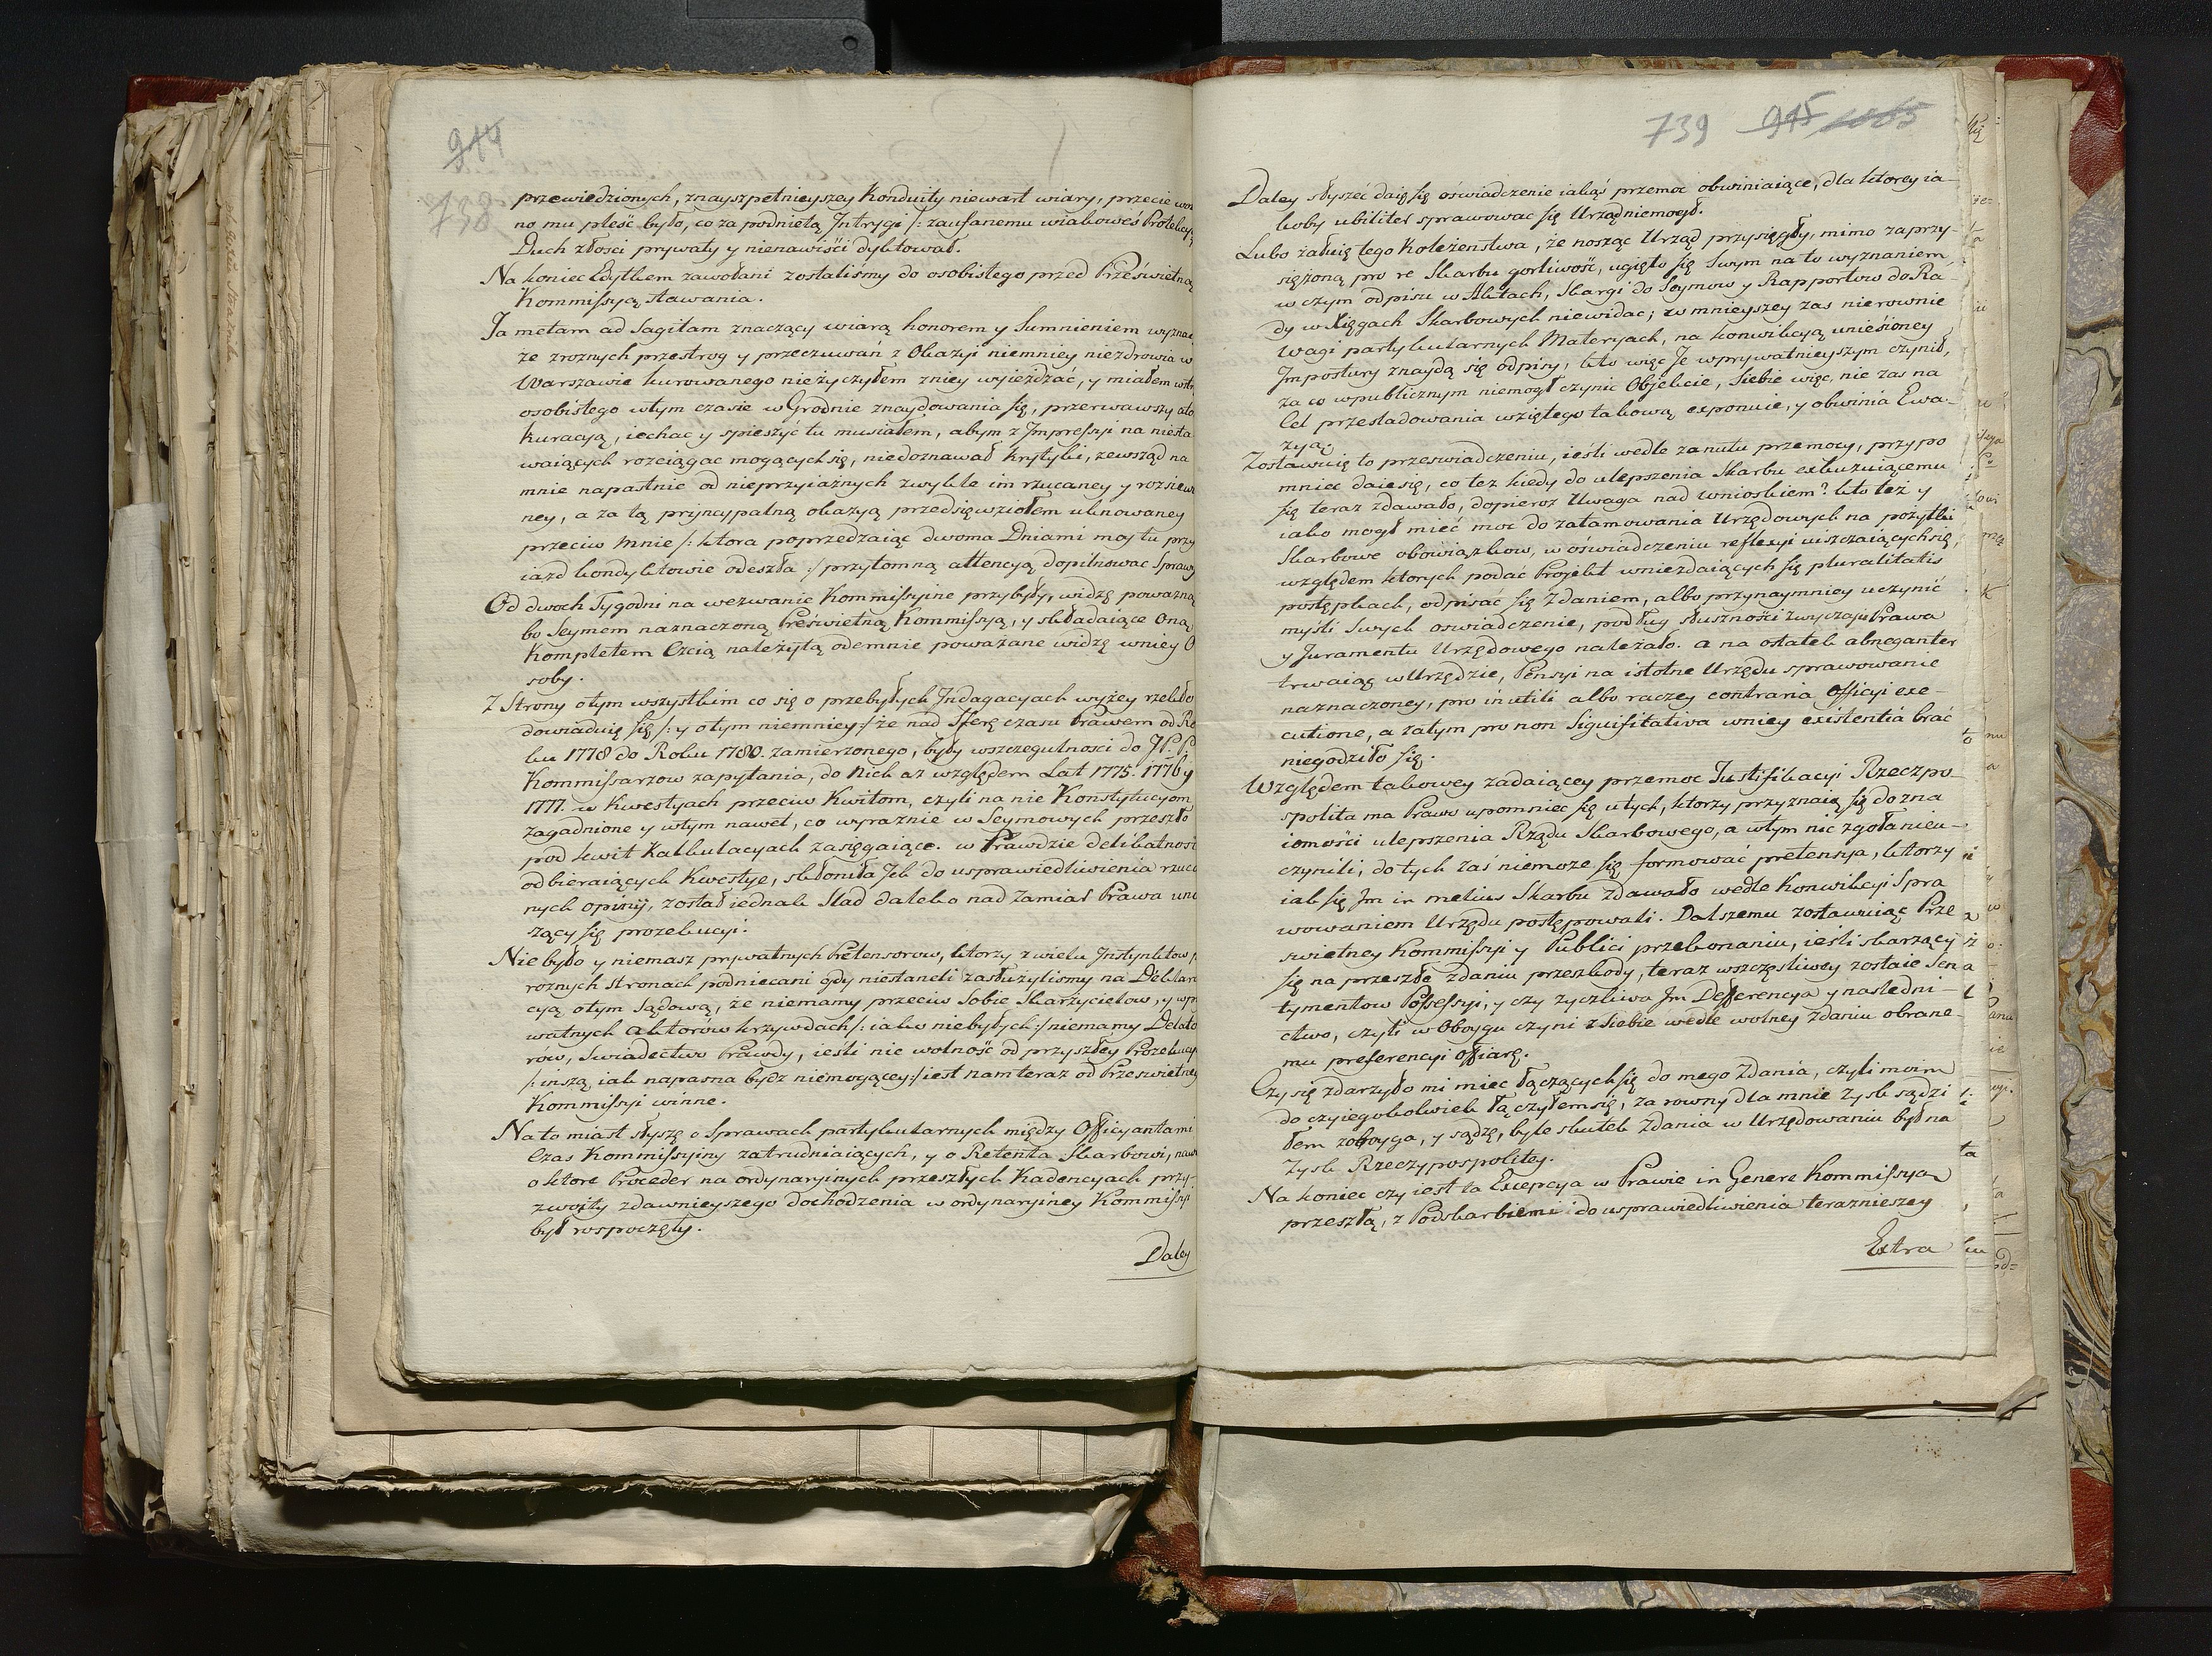 914
738
przewiedzionych, znayszpetnieyszey Konduity niewart wiary, przecie
no mu pleść było, co za podnietą Jntrygi /: zaufanemu wiakoweś
Duch złości prywaty y nienawiści dyktował.
Na koniec Edyktem zawołani zostaliśmy do osobistego przed Prześwietną
Kommissyą stawania.
Ja metam ad Sagitam znaczący wiarą honorem y Sumnieniem
że zroznych przestrog y przeczuwań z Okazyi niemniey niezdrowia w
Warszawie kurowanego nieżyczyłem zniey wyieżdżać, y miałem
osobistego wtym czasie w Grodnie znaydowania się, przerwawszy
kuracyą, iechac y spieszyć tu musiałem, abym z Jmpressyi na niesta
waiących rozciągac mogących się, niedoznawał krytyki, zewsząd na
mnie napastnie od nieprzyiaznych zwykle im rzucaney y rozsiew
ney, a za tą pryncypalną okazyą przedsięwziołem uknowaney
przeciw mnie /: ktora poprzedzaiąc dwoma Dniami moy tu przy
iazd kondyktowie odeszła :/ przytomną attencyą dopilnowac Sprawy
Od dwoch Tygodni na wezwanie Kommissyine przybyły, widzę poważną
bo Seymem naznaczoną Prześwietną Kommissyą, y składaiące Oną
Kompletem Czcią należytą odemnie poważane widzę wniey O
soby.
Z Strony otym wszystkim co się o przebyłych Jndagacyach wyżey rzekło
dowiaduię się /: y otym niemniey :/ że nad Sferę czasu Prawem od Ro
ku 1778 do Roku 1780. zamierzonego, były wszczegulnosci do
Kommissarzow zapytania, do Nich aż względem Lat 1775. 1776 y
1777. w Kwestyach przeciw Kwitom, czyli na nie Konstytucyom
zagadnione y wtym nawet, co wyraznie w Seymowych przeszło
pod kwit Kalkulacyach zasięgaiące. w Prawdzie delikatnosć
odbieraiących Kwestye, skłoniła Jch do usprawiedliwienia
nych opinij, został iednak Slad daleko nad Zamiar Prawa
szący się prozekucyi.
Nie było y niemasz prywatnych Pretensorow, ktorzy z wielu Jnstynktow
roznych stronach podniecani gdy niestaneli zasłużylismy na
cyą otym Sądową, że niemamy przeciw Sobie Skarżycielow, y
watnych Aktorów krzywdach /: iako niebyłych :/ niemamy Delato
rów, Swiadectwo Prawdy, ieśli nie wolność od przyszłey
/: inszą, iak napasna bydz niemogącey :/ iest nam teraz od Przeswietney
Kommissyi winne.
Na to miast słyszę o Sprawach partykularnych między Officyantami
Czas Kommissyiny zatrudniaiących, y o Retenta Skarbowi,
o ktore Proceder na ordynaryinych przeszłych Kadencyach przy-
zwoity zdawnieyszego dochodzenia w ordynaryiney Kommissyi
był rospoczęty.
Daley
739 915 1065
Daley słyszeć daię się oświadczenie iakąś przemoc obwiniaiące, dla ktorey ia-
koby ubiliter sprawowac się Urząd niemogł.
Lubo żałuię tego Koleżenstwa, że nosząc Urząd przysięgły, mimo zaprzy-
siężoną pro re Skarbu gorliwość, ugięło się Swym na to wyznaniem,
w czym odpisu w Aktach, Skargi do Seymow y Rapportow do Ra-
dy w Xięgach Skarbowych niewidac; w mnieyszey zas nierownie
wagi partykularnych Materyach, na konwikcyą uniesioney
Jmpostury znaydą się odpisy, kto więc Je wprywatnieyszym czynił,
za co wpublicznym niemogł czynic Objekcie, Siebie więc, nie zas na
Cel przesladowania wziętego takową exponuie, y obwinia Ewa-
zyą.
Zostawuię to przeswiadczeniu, ieśli wedle zanutu przemocy, przypo
mniec daie się, co tez kiedy do ulepszenia Skarbu exkuzuiącemu
się teraz zdawało, dopieroż Uwaga nad wnioskiem? kto też y
iako mogł mieć moc do zatamowania Urzędowych na pożytki
Skarbowe obowiązkow, w oświadczeniu reflexyi uiszczaiących się,
względem ktorych podać Projekt wniezdaiących się pluralitatis
postępkach, odpisać się Zdaniem, albo przynaymniey uczynić
myśli Swych oswiadczenie, podług słuszności zwyczaju Prawa
y Juramentu Urzędowego należało. a na ostatek abneganter
trwaiąc w Urzędzie, Pensyi na istotne Urzędu sprawowanie
naznaczoney, pro inutili albo raczey contraria Officyi exe-
cutione, a zatym pro non Significativa wniey existentia brać
niegodziło się.
Względem takowey zadaiącey przemoc Justifikacyi Rzeczpo-
spolita ma Prawo upomniec się utych, ktorzy przyznaią się do zna
iomości ulepszenia Rządu Skarbowego, a wtym nic zgoła nieu-
czynili, do tych zaś niemoże się formować pretensya, ktorzy
iak się Jm in melius Skarbu zdawało wedle Konwikcyi Spra
wowaniem Urzędu postępowali. Dalszemu zostawuiąc Prze
swietney Kommissyi y Publici przekonaniu, ieśli skarżący
się na przeszłe zdaniu przeszkody, teraz wszczęsliwey zostaie Sen
tymentow Possessyi, y czy życzliwa Jm Defferencya y nasledni-
ctwo, czyli w Oboygu czyni z Siebie wedle wolney Zdaniu obrane-
mu preferencyi Offiarę.
Czy się zdarzyło mi miec łączących się do mego Zdania, czyli moim
do czyiegokolwiek łączyłem się, za rowny dla mnie zysk sądzi
łem z oboyga, y sądzę, byle skutek Zdania w Urzędowaniu był na
Zysk Rzeczypospolitey.
Na koniec czy iest ta Excepcya w Prawie in Genere Kommissyą
przeszłą, z Podskarbiemi do usprawiedliwienia teraznieszey
Extra